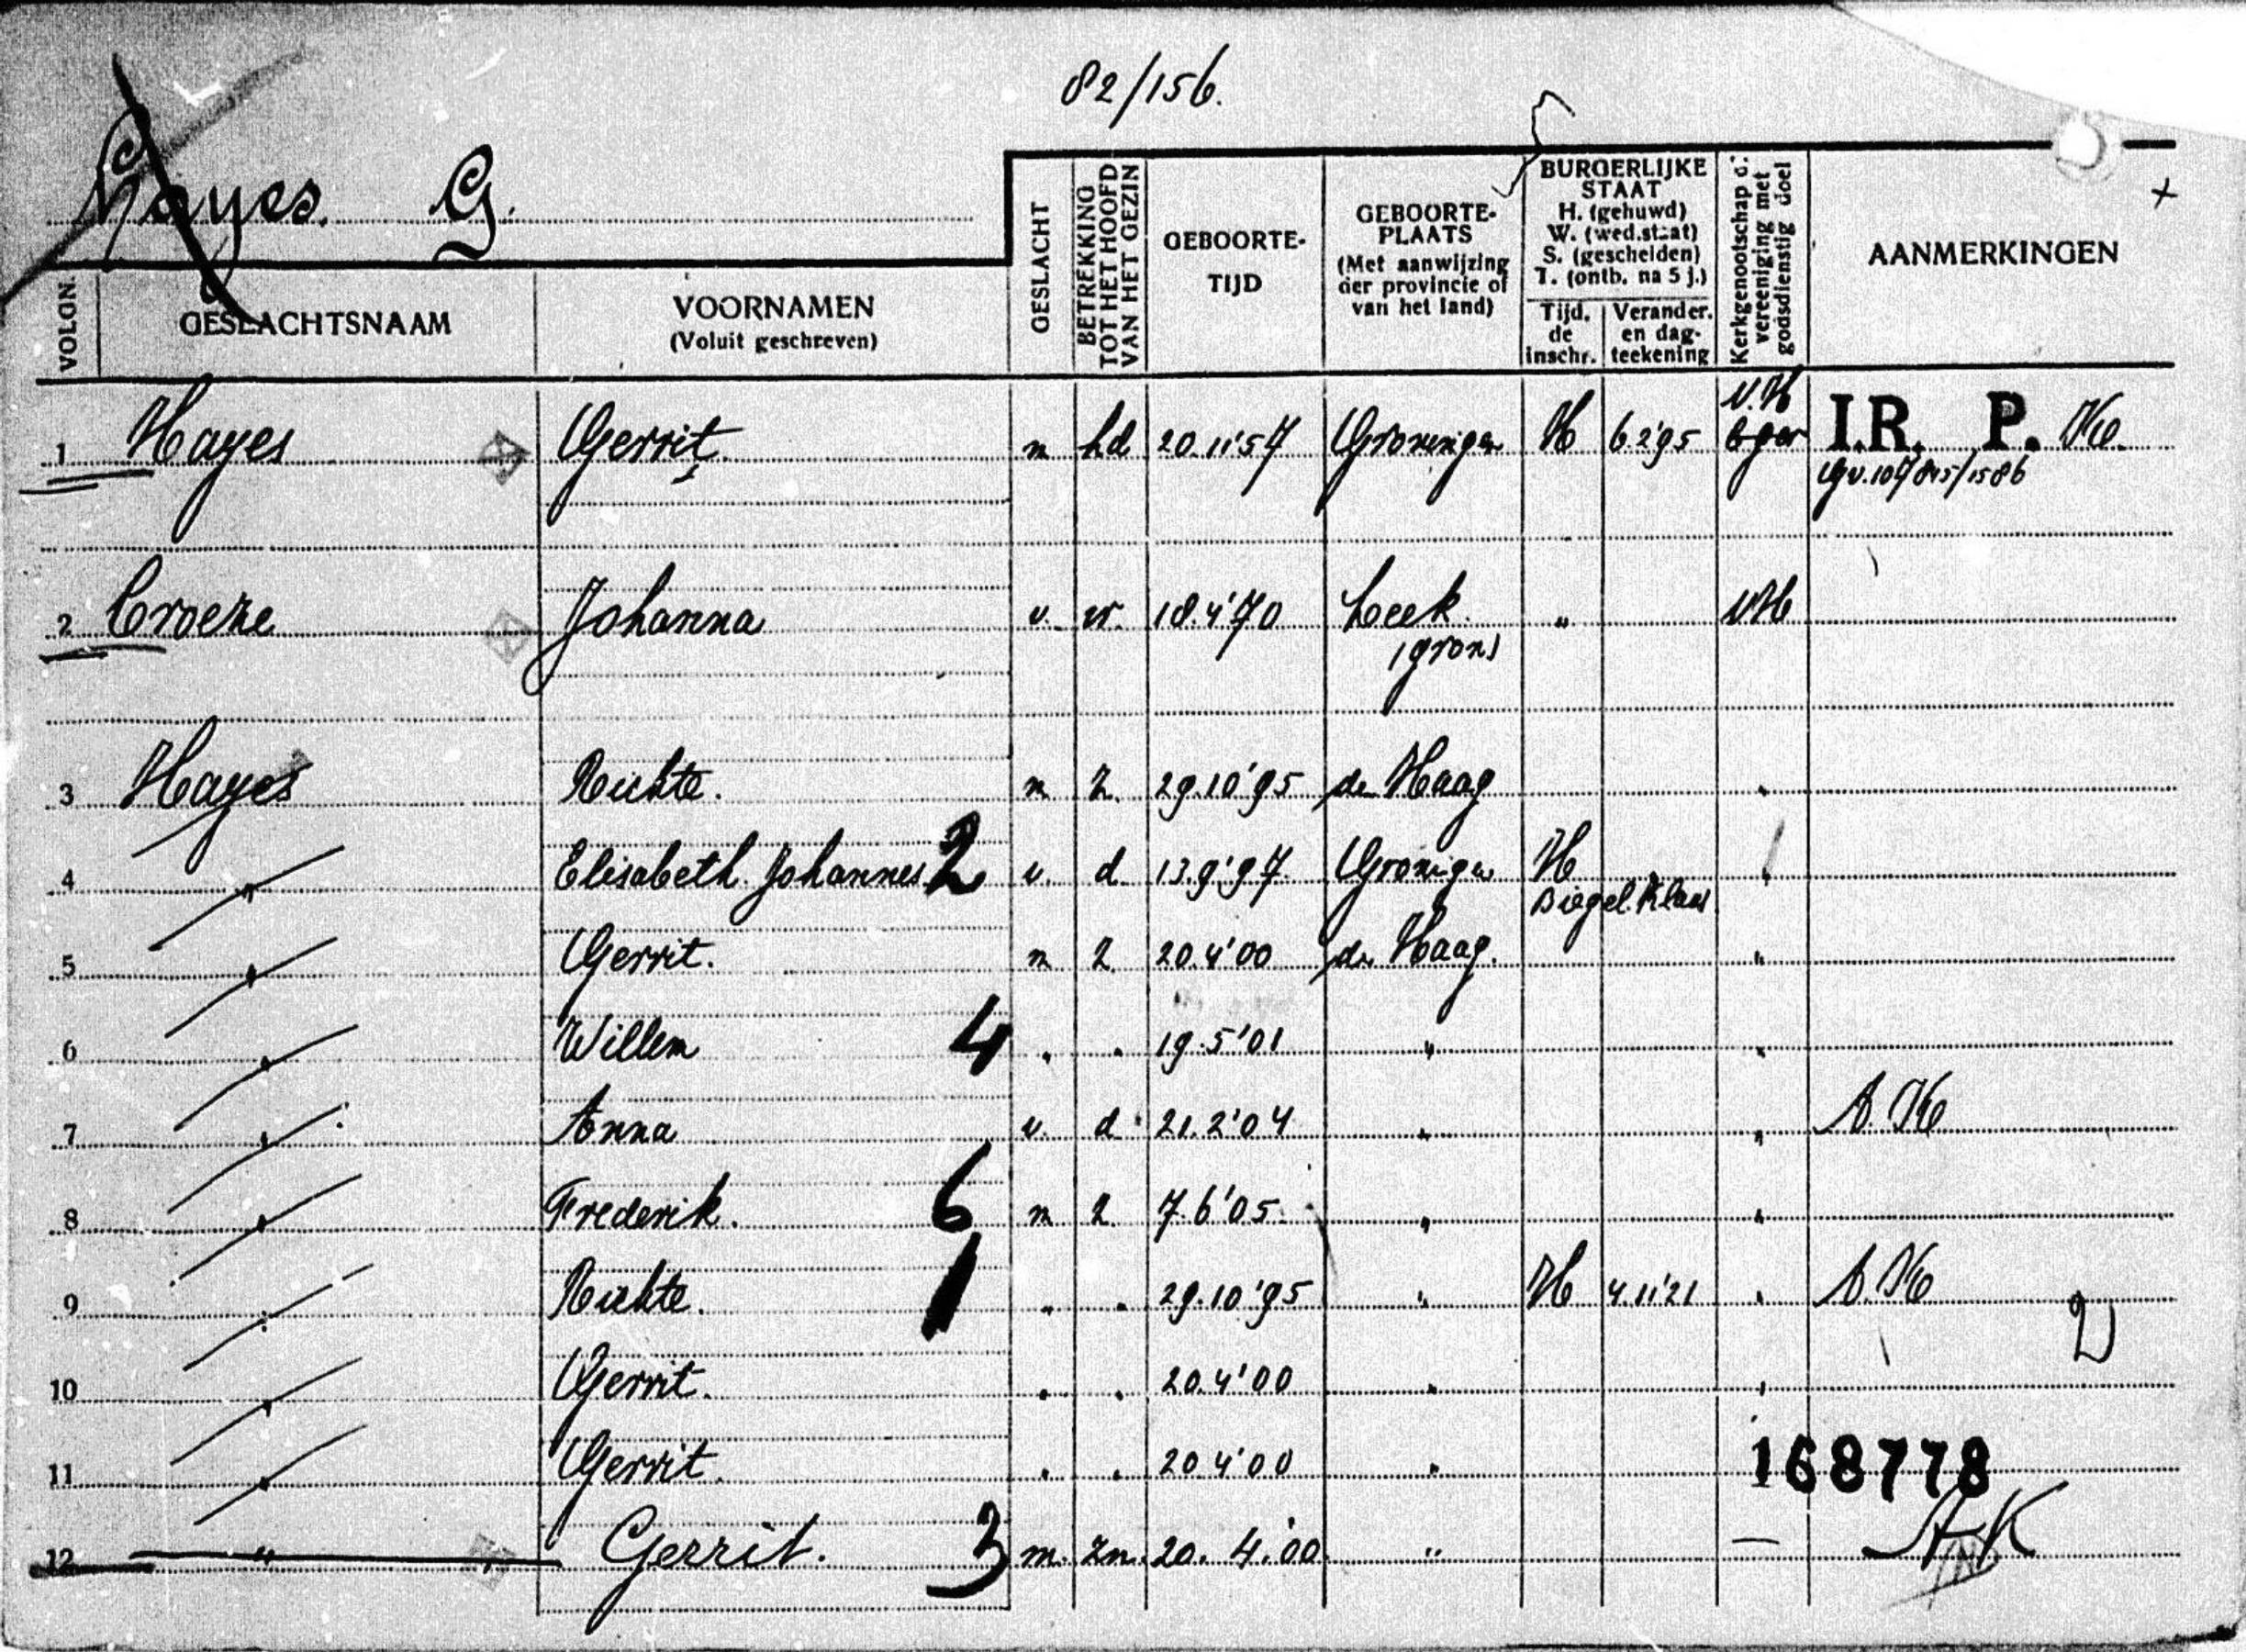 82/156.
Hayes. G.
VOLGN.
GESLACHTSNAAM
VOORNAMEN
(Voluit geschreven)
GESLACHT
BETREKKING
TOT HET HOOFD
VAN HET GEZIN
GEBOORTE-
TIJD
GEBOORTE-
PLAATS
(Met aanwijzing
der provincie of
van het land)
BURGERLIJKE
STAAT
H. (gehuwd)
W. (wed.staat)
S. (gescheiden)
T. (ontb. na 5 j.)
Tijd.
de
inschr.
Verander.
en dag-
teekening
Kerkgenootschap d.
vereeniging met
godsdienstig doel
AANMERKINGEN
+
N.H
1 Hayes Gerrit. m hd 20.11'57 Groningen H 6.2'95 I.R. P.
2 Croeze Johanna v. vr. 18.4'70 Leek " NH
(gron)
3 Hayes Richte. m z. 29.10'95 den Haag "
4 " Elisabeth Johannes 2 v. d 13.9'97 Groningen H "
Siegel. Klaas
5 " Gerrit. m z 20.4'00 den Haag. "
6 " Willem 4 " " 19.5'01 " "
7 " Anna v. d 21.2'04 " "
8 " Frederik. 6 m z 7.6'05 " "
9 " Richte. 1 " " 29.10'95 " H 4.11'21 "
10 " Gerrit. " " 20.4'00 " "
11 " Gerrit. " " 20 4'00 " 168778
12 " Gerrit. 3 m. zn. 20. 4.'00 " — AK